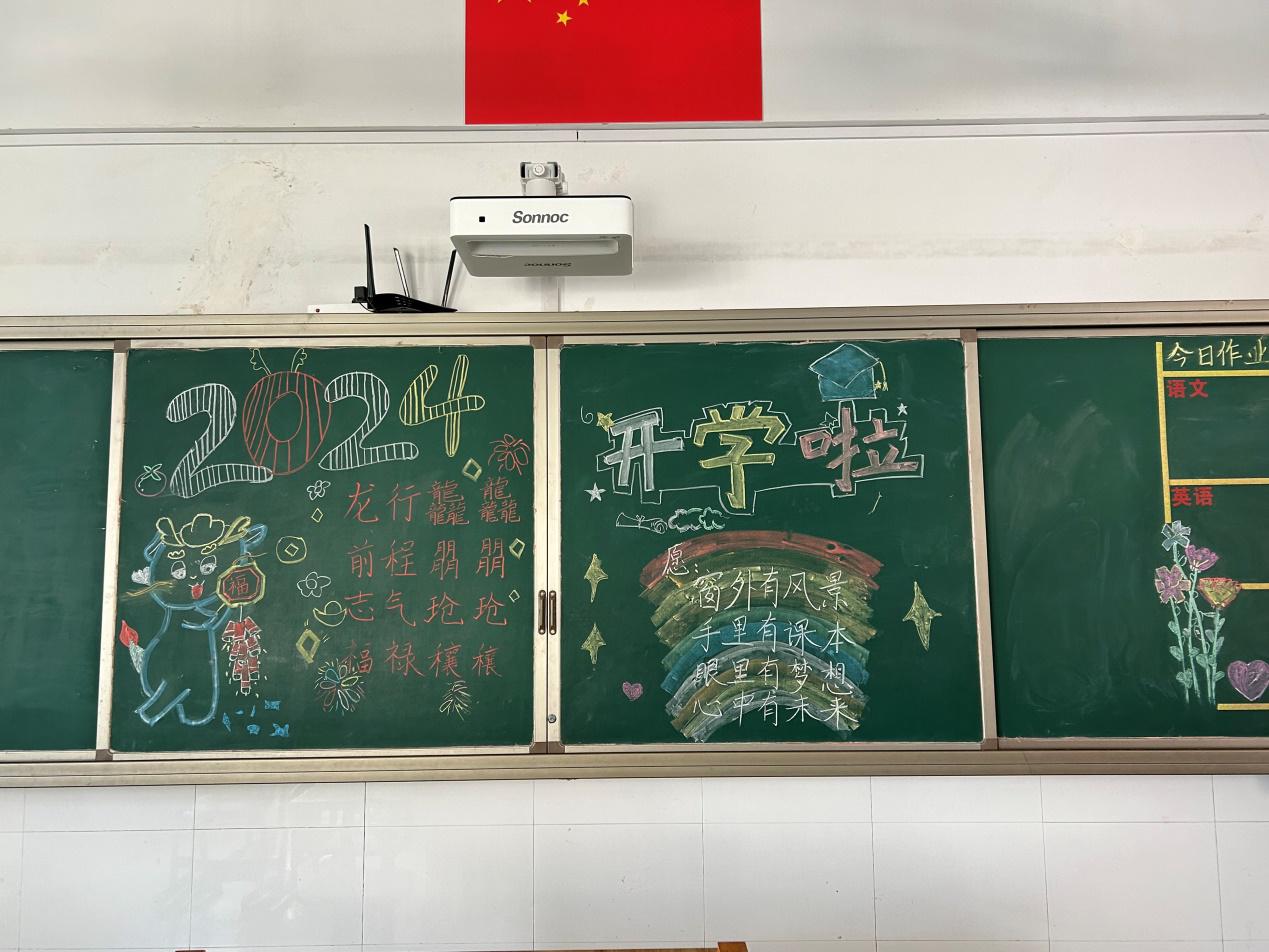 Sonnoc
Sonnoc
2024
龙行龘龘
前程朤朤
志气玱玱
福禄穰穰
福
开学啦
愿：
窗外有风景
手里有课本
眼里有梦想
心中有未来
今日作业
语文
英语